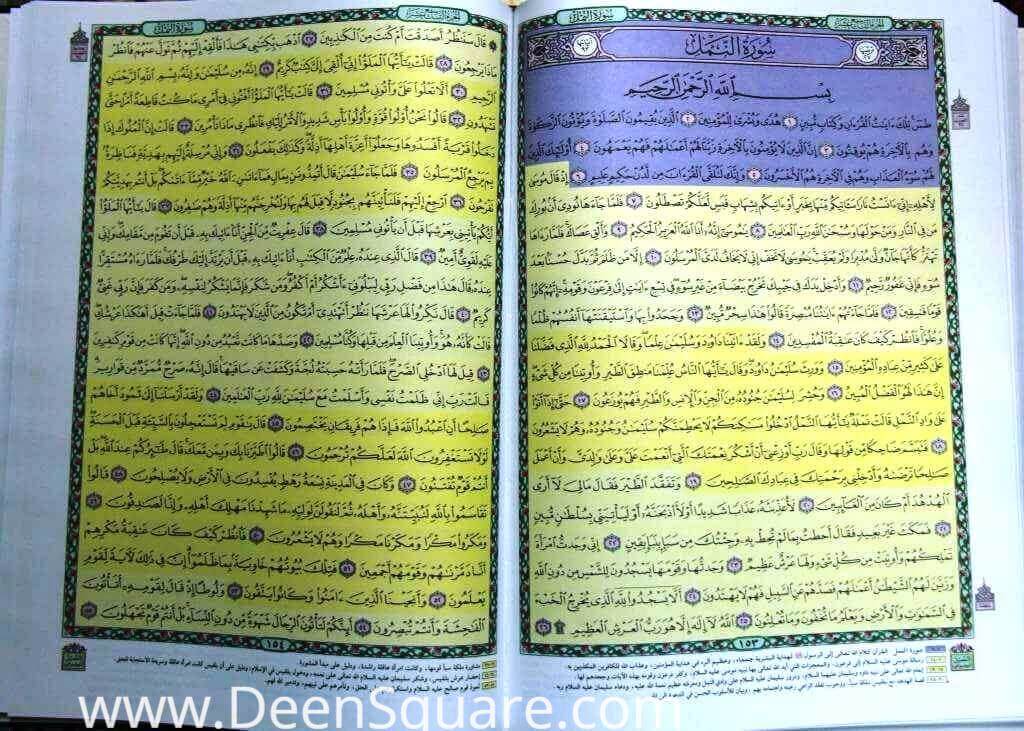 سورة النمل
سُورَةُ النَّمْلِ
بِسْمِ اللَّهِ الرَّحْمَنِ الرَّحِيمِ
طس تلك ءايت القرءان وكتاب مبين ١ هدى وبشرى للمؤمنين ٢ الذين يقيمون الصلوة ويؤتون الزكوة
وهم بالءاخرة هم يوقنون ٣ إن الذين لا يؤمنون بالءاخرة زينا لهم أعملهم فهم يعمهون ٤ أولئك الذين
لهم سوء العذاب وهم في الءاخرة هم الأخسرون ٥ وإنك لتلقى القرءان من لدن حكيم عليم ٦ إذ قال موسى
لأهله إني ءانست نارا سءاتيكم منها بخبر أو ءاتيكم بشهاب قبس لعلكم تصطلون ٧ فلما جاءها نودي أن بورك
من في النار ومن حولها وسبحن الله رب العلمين ٨ يموسى إنه أنا الله العزيز الحكيم ٩ وألق عصاك فلما رءاها
تهتز كأنها جان ولى مدبرا ولم يعقب يموسى لا تخف إني لا يخاف لدي المرسلون ١٠ إلا من ظلم ثم بدل حسنا بعد
سوء فإني غفور رحيم ١١ وأدخل يدك في جيبك تخرج بيضاء من غير سوء في تسع ءايت إلى فرعون وقومه إنهم كانوا
قوما فسقين ١٢ فلما جاءتهم ءايتنا مبصرة قالوا هذا سحر مبين ١٣ وجحدوا بها واستيقنتها أنفسهم ظلما
وعلوا فانظر كيف كان عقبة المفسدين ١٤ ولقد ءاتينا داود وسليمن علما وقالا الحمد لله الذي فضلنا
على كثير من عباده المؤمنين ١٥ وورث سليمن داود وقال يأيها الناس علمنا منطق الطير وأوتينا من كل شيء
إن هذا لهو الفضل المبين ١٦ وحشر لسليمن جنوده من الجن والإنس والطير فهم يوزعون ١٧ حتى إذا أتوا
على واد النمل قالت نملة يأيها النمل ادخلوا مسكنكم لا يحطمنكم سليمن وجنوده وهم لا يشعرون
١٨ فتبسم ضاحكا من قولها وقال رب أوزعني أن أشكر نعمتك التي أنعمت علي وعلى ولدي وأن أعمل
صلحا ترضىه وأدخلني برحمتك في عبادك الصلحين ١٩ وتفقد الطير فقال ما لي لا أرى
الهدهد أم كان من الغائبين ٢٠ لأعذبنه عذابا شديدا أو لأاذبحنه أو ليأتيني بسلطن مبين
٢١ فمكث غير بعيد فقال أحطت بما لم تحط به وجئتك من سبإ بنبإ يقين ٢٢ إني وجدت امرأة
تملكهم وأوتيت من كل شيء ولها عرش عظيم ٢٣ وجدتها وقومها يسجدون للشمس من دون الله
وزين لهم الشيطن أعملهم فصدهم عن السبيل فهم لا يهتدون ٢٤ ألا يسجدوا لله الذي يخرج الخبء
في السموت والأرض ويعلم ما تخفون وما تعلنون ٢٥ الله لا إله إلا هو رب العرش العظيم ۩ ٢٦
١٥٣
سورة النمل
قال سننظر أصدقت أم كنت من الكذبين ٢٧ اذهب بكتبي هذا فألقه إليهم ثم تول عنهم فانظر
ماذا يرجعون ٢٨ قالت يأيها الملؤا إني ألقي إلي كتب كريم ٢٩ إنه من سليمن وإنه بسم الله الرحمن
الرحيم ٣٠ ألا تعلوا علي وأتوني مسلمين ٣١ قالت يأيها الملؤا أفتوني في أمري ما كنت قاطعة أمرا حتى
تشهدون ٣٢ قالوا نحن أولوا قوة وأولوا بأس شديد والأمر إليك فانظري ماذا تأمرين ٣٣ قالت إن الملوك إذا
دخلوا قرية أفسدوها وجعلوا أعزة أهلها أذلة وكذلك يفعلون ٣٤ وإني مرسلة إليهم بهدية فناظرة
بم يرجع المرسلون ٣٥ فلما جاء سليمن قال أتمدونن بمال فما ءاتىن الله خير مما ءاتىكم بل أنتم بهديتكم
تفرحون ٣٦ ارجع إليهم فلنأتينهم بجنود لا قبل لهم بها ولنخرجنهم منها أذلة وهم صغرون ٣٧ قال يأيها الملؤا
أيكم يأتيني بعرشها قبل أن يأتوني مسلمين ٣٨ قال عفريت من الجن أنا ءاتيك به قبل أن تقوم من مقامك وإني
عليه لقوي أمين ٣٩ قال الذي عنده علم من الكتب أنا ءاتيك به قبل أن يرتد إليك طرفك فلما رءاه مستقرا
عنده قال هذا من فضل ربي ليبلوني ءأشكر أم أكفر ومن شكر فإنما يشكر لنفسه ومن كفر فإن ربي غني
كريم ٤٠ قال نكروا لها عرشها ننظر أتهتدي أم تكون من الذين لا يهتدون ٤١ فلما جاءت قيل أهكذا عرشك
قالت كأنه هو وأوتينا العلم من قبلها وكنا مسلمين ٤٢ وصدها ما كانت تعبد من دون الله إنها كانت من قوم كفرين
٤٣ قيل لها ادخلي الصرح فلما رأته حسبته لجة وكشفت عن ساقيها قال إنه صرح ممرد من قوارير
قالت رب إني ظلمت نفسي وأسلمت مع سليمن لله رب العلمين ٤٤ ولقد أرسلنا إلى ثمود أخاهم
صلحا أن اعبدوا الله فإذا هم فريقان يختصمون ٤٥ قال يقوم لم تستعجلون بالسيئة قبل الحسنة
لولا تستغفرون الله لعلكم ترحمون ٤٦ قالوا اطيرنا بك وبمن معك قال طئركم عند الله بل
أنتم قوم تفتنون ٤٧ وكان في المدينة تسعة رهط يفسدون في الأرض ولا يصلحون ٤٨ قالوا
تقاسموا بالله لنبيتنه وأهله ثم لنقولن لوليه ما شهدنا مهلك أهله وإنا لصدقون ٤٩
ومكروا مكرا ومكرنا مكرا وهم لا يشعرون ٥٠ فانظر كيف كان عقبة مكرهم
أنا دمرنهم وقومهم أجمعين ٥١ فتلك بيوتهم خاوية بما ظلموا إن في ذلك لءاية لقوم
يعلمون ٥٢ وأنجينا الذين ءامنوا وكانوا يتقون ٥٣ ولوطا إذ قال لقومه أتأتون
الفحشة وأنتم تبصرون ٥٤ أئنكم لتأتون الرجال شهوة من دون النساء بل أنتم قوم تجهلون ٥٥
١٥٤
www.DeenSquare.com